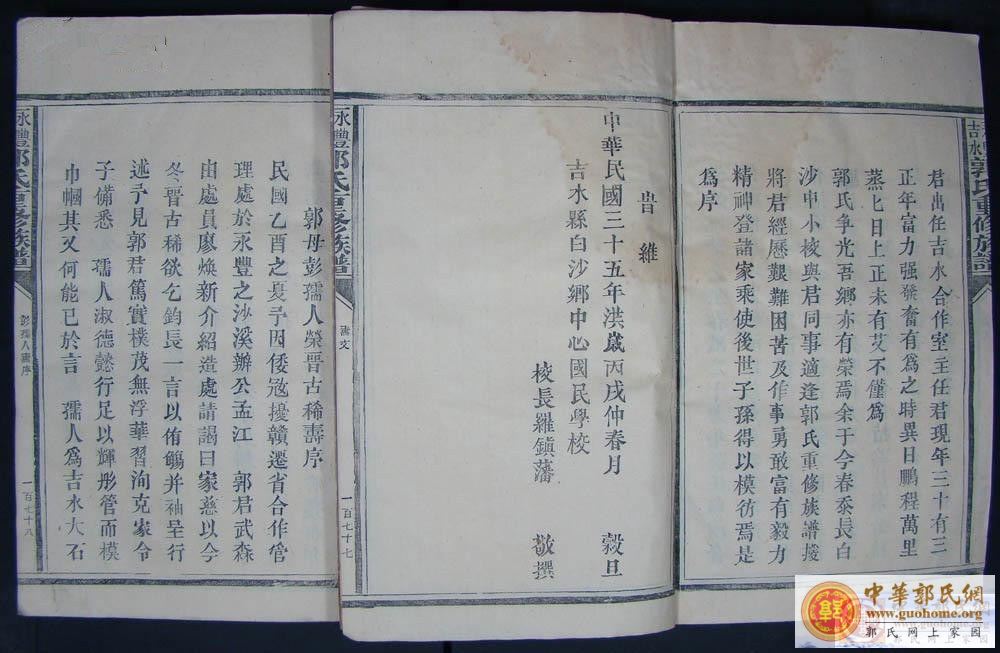 君出任吉水合作室主任君現年三十有三
正年富力强發奮有爲之時異日鵬程萬里
蒸蒸日上正未有艾不僅爲
郭氏爭光吾鄉亦有榮焉余于今春忝長白
沙中小校與君同事適逢郭氏重修族譜援
將君經歷艱難困苦及作事勇敢富有毅力
精神登諸家乘使後世子孫得以模彷焉是
爲序
吉水郭氏重修族譜
旹維
中華民國三十五年洪歲丙戌仲春月 穀旦
吉水縣白沙鄉中心國民學校
校長羅鎮藩 敬撰
永豐郭氏重修族譜
壽文
一百七十七
郭母彭孺人榮晋古稀壽序
民國乙酉之夏予因倭寇擾贛遷省合作管
理處於永豐之沙溪辦公孟江 郭君武森
由處員廖煥新介紹造處請謁曰家慈以今
冬晋古稀欲乞鈞長一言以侑觴并袖呈行
述予見郭君篤實樸茂無浮華習洵克家令
子備悉 孺人淑德懿行足以輝彤管而模
巾幗其又何能已於言 孺人爲吉水大石
永豐郭氏重修族譜
彭孺人壽序
一百七十八
中華郭氏網
www.guohome.com
郭氏网上家园